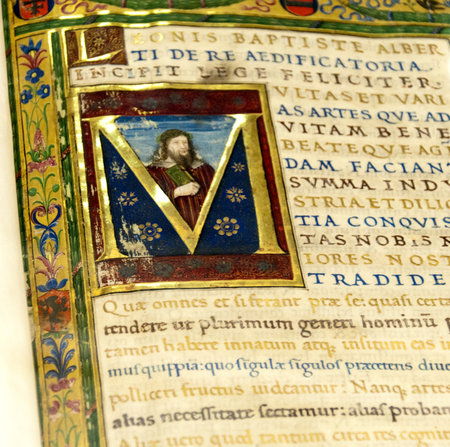 LEONIS BAPTISTE ALBER
TI DE RE AEDIFICATORIA
INCIPIT LEGE FELICITER
MULTAS ET VARI
AS ARTES QUE AD
VITAM BENE
BEATE QUE AG
DAM FACIANT
SUMMA INDU
STRIA ET DILIG
TIA CONQUIS
TAS NOBIS
IORES NOST
TRADIDE
Quæ omnes et si ferant præ se: quasi certa
tendere ut plurimum generi hominũ
tamen habere innatum atq; insitum eas
mus quippiã: quo singulæ singulos præ cæteris
polliceri fructus uideantur: Nanq; artes
alias necessitate sectamur: alias proban
Aliæ uero quod tantum circa res